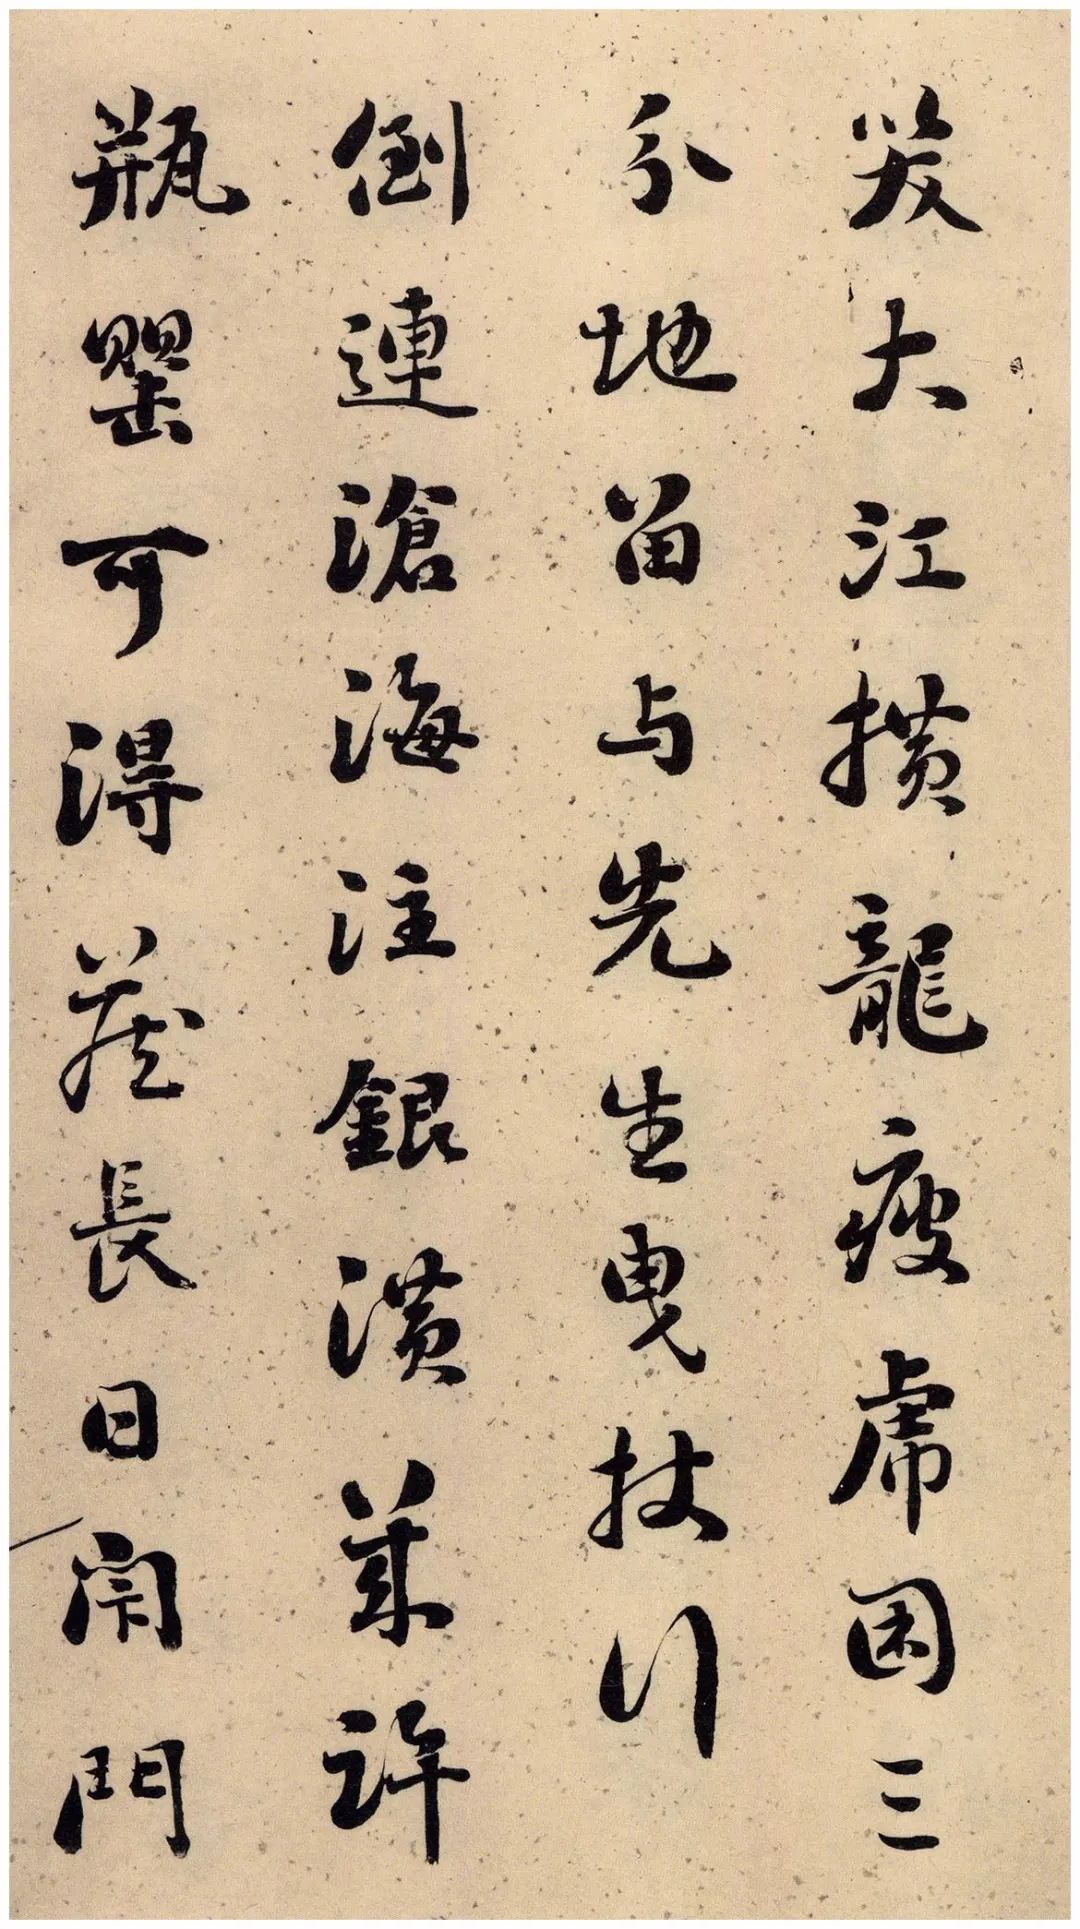 大江橫龍瘦虎困三
分地留与先生曳杖行
倒連滄海注銀潢幾許
瓶罌可得藏長日閉門